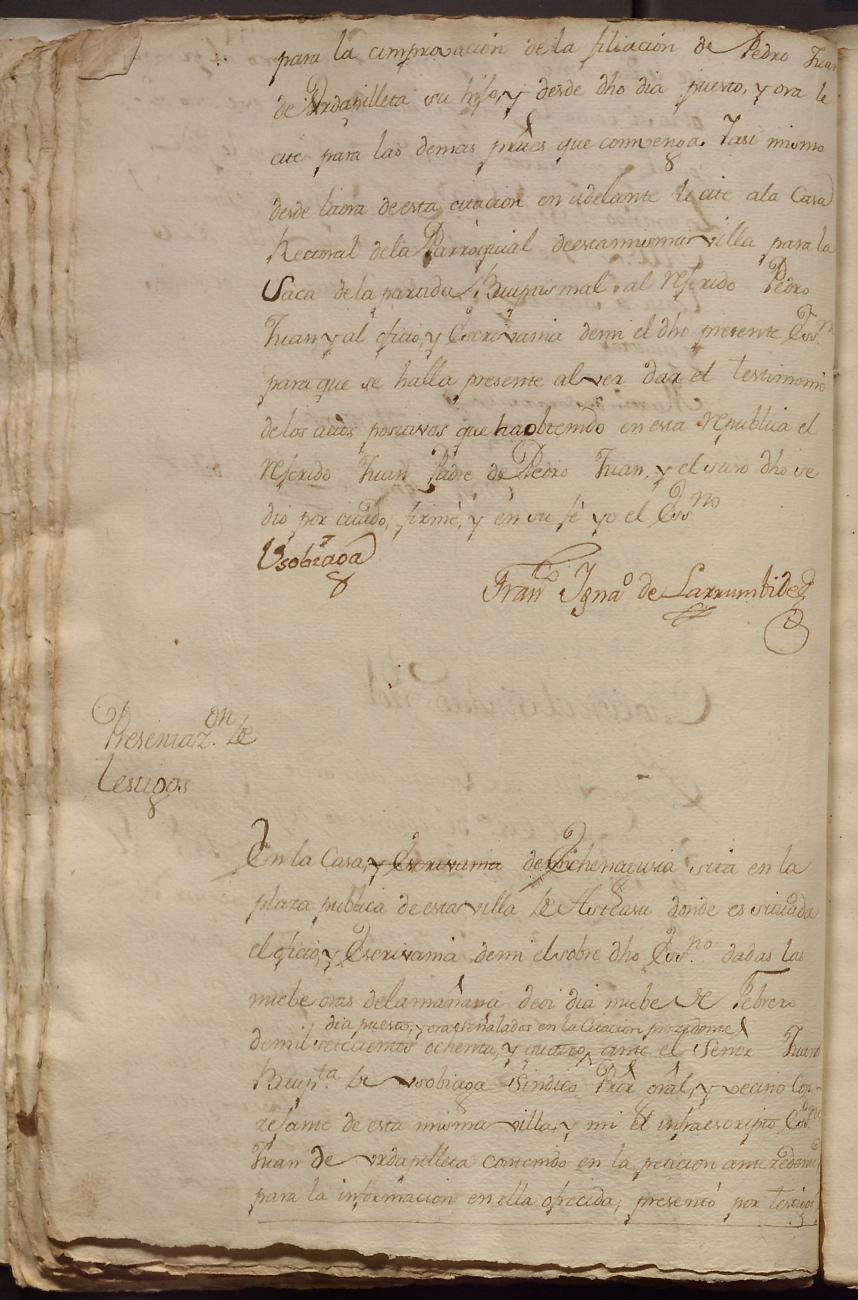 para la comprovación de la filiación de Pedro Juan
de Urdapilleta su hijo, y desde dho dia puesto, y ora le
cite para las demas prues que convenga. Y asi mismo
desde la ora de esta citacion en adelante le cite ala Casa
Rectoral dela Parroquial de esta misma villa para la
Saca de la partida Bauptismal al referido Pedro
Juan y al oficio, y Escrivania demi el dho presente Essno
para que se halla presente al ver dar el testimonio
de los autos positivos que ha obtenido en esta republica el
referido Juan Padre de Pedro Juan, y el suso dho se
dio por citado, firmé, y en su fé yo el Essno
Usobiaga
Franco Ignao de Larrumbide
Presentazon de
testigos
En la Casa, y Escrivania de Echenagusia sita en la
plaza publica de esta villa de Asteasu donde es situada
el oficio, y Escrivania demi el sobre dho Essno dadas las
nuebe oras dela mañana de oi dia nuebe de Febrero
dia puesto, y ora señalados en la Citacion prozedente
demil setecientos ochenta, y quatro, ante el Señor Juan
Bauptta de Usobiaga Sindico Pror Gral, y vecino Con-
zejante de esta misma villa, y mi el infraescripto Essno
Juan de Urdapilleta contenido en la peticion antezedente
para la informacion en ella ofrecida, presentó por testigo